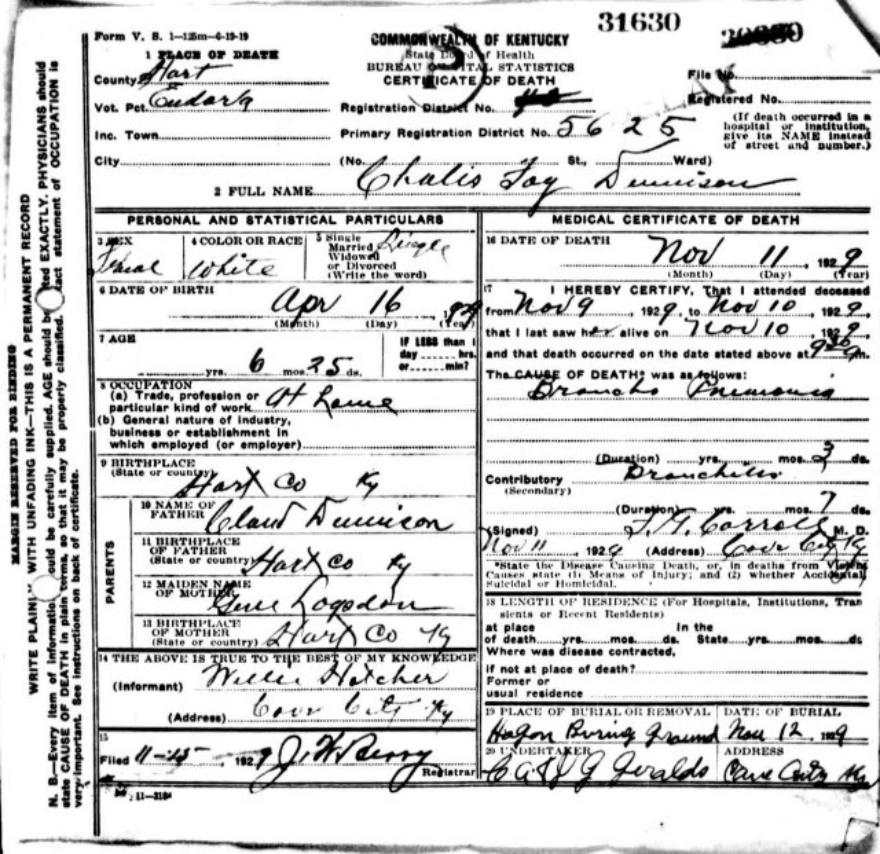 Form V. S. 1—125m—6-19-19
31630
COMMONWEALTH OF KENTUCKY
State Board of Health
BUREAU OF VITAL STATISTICS
CERTIFICATE OF DEATH
1 PLACE OF DEATH
County Hart
Vot. Pct.
Inc. Town
City
Registration District No.
Primary Registration District No. 5625
(No. St., Ward)
File No.
Registered No.
(If death occurred in a
hospital or institution,
give its NAME instead
of street and number.)
2 FULL NAME Chalis Fay Dennison
PERSONAL AND STATISTICAL PARTICULARS
3 SEX
4 COLOR OR RACE White
5 Single
Married
Widowed
or Divorced
(Write the word) Single
6 DATE OF BIRTH Apr 16 1929
(Month) (Day) (Year)
7 AGE
yrs. 6 mos. 25 ds.
IF LESS than 1
day hrs.
or min?
8 OCCUPATION
(a) Trade, profession or
particular kind of work At home
(b) General nature of industry,
business or establishment in
which employed (or employer)
9 BIRTHPLACE
(State or country) Hart Co Ky
PARENTS
10 NAME OF
FATHER Claud Dennison
11 BIRTHPLACE
OF FATHER
(State or country) Hart Co Ky
12 MAIDEN NAME
OF MOTHER Logsdon
13 BIRTHPLACE
OF MOTHER
(State or country) Hart Co Ky
14 THE ABOVE IS TRUE TO THE BEST OF MY KNOWLEDGE
(Informant) Willie Hatcher
(Address) Cave City Ky
15
Filed 11-15 1929 J. W. Perry
Registrar
11—3184
MEDICAL CERTIFICATE OF DEATH
16 DATE OF DEATH Nov 11, 1929
(Month) (Day) (Year)
17 I HEREBY CERTIFY, That I attended deceased
from Nov 9 1929, to Nov 10 1929,
that I last saw her alive on Nov 10 1929
and that death occurred on the date stated above at m.
The CAUSE OF DEATH* was as follows:
Broncho Pnemonia
(Duration) yrs. mos. 3 ds.
Contributory Bronchitis
(Secondary)
(Duration) yrs. mos. 7 ds.
(Signed) Carroll M. D.
Nov 11, 1929 (Address) Cave City Ky
*State the Disease Causing Death, or, in deaths from Violent
Causes state (1) Means of Injury; and (2) whether Accidental,
Suicidal or Homicidal.
18 LENGTH OF RESIDENCE (For Hospitals, Institutions, Tran
sients or Recent Residents)
at place In the
of death yrs. mos. ds. State yrs. mos. ds
Where was disease contracted,
if not at place of death?
Former or
usual residence
19 PLACE OF BURIAL OR REMOVAL DATE OF BURIAL
Ground Nov 12, 1929
20 UNDERTAKER ADDRESS
Geralds Cave City Ky
MARGIN RESERVED FOR BINDING
WRITE PLAINLY WITH UNFADING INK—THIS IS A PERMANENT RECORD
N. B.—Every item of information should be carefully supplied. AGE should be stated EXACTLY. PHYSICIANS should
state CAUSE OF DEATH in plain terms, so that it may be properly classified. Exact statement of OCCUPATION is
very important. See instructions on back of certificate.